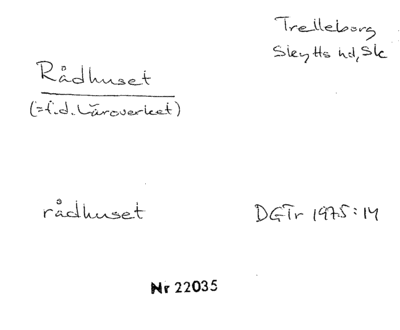 Trelleborg
Skytts hd, Sk
Rådhuset
(=f.d. Läroverket)
rådhuset
DGTr 1975:14
Nr 22035